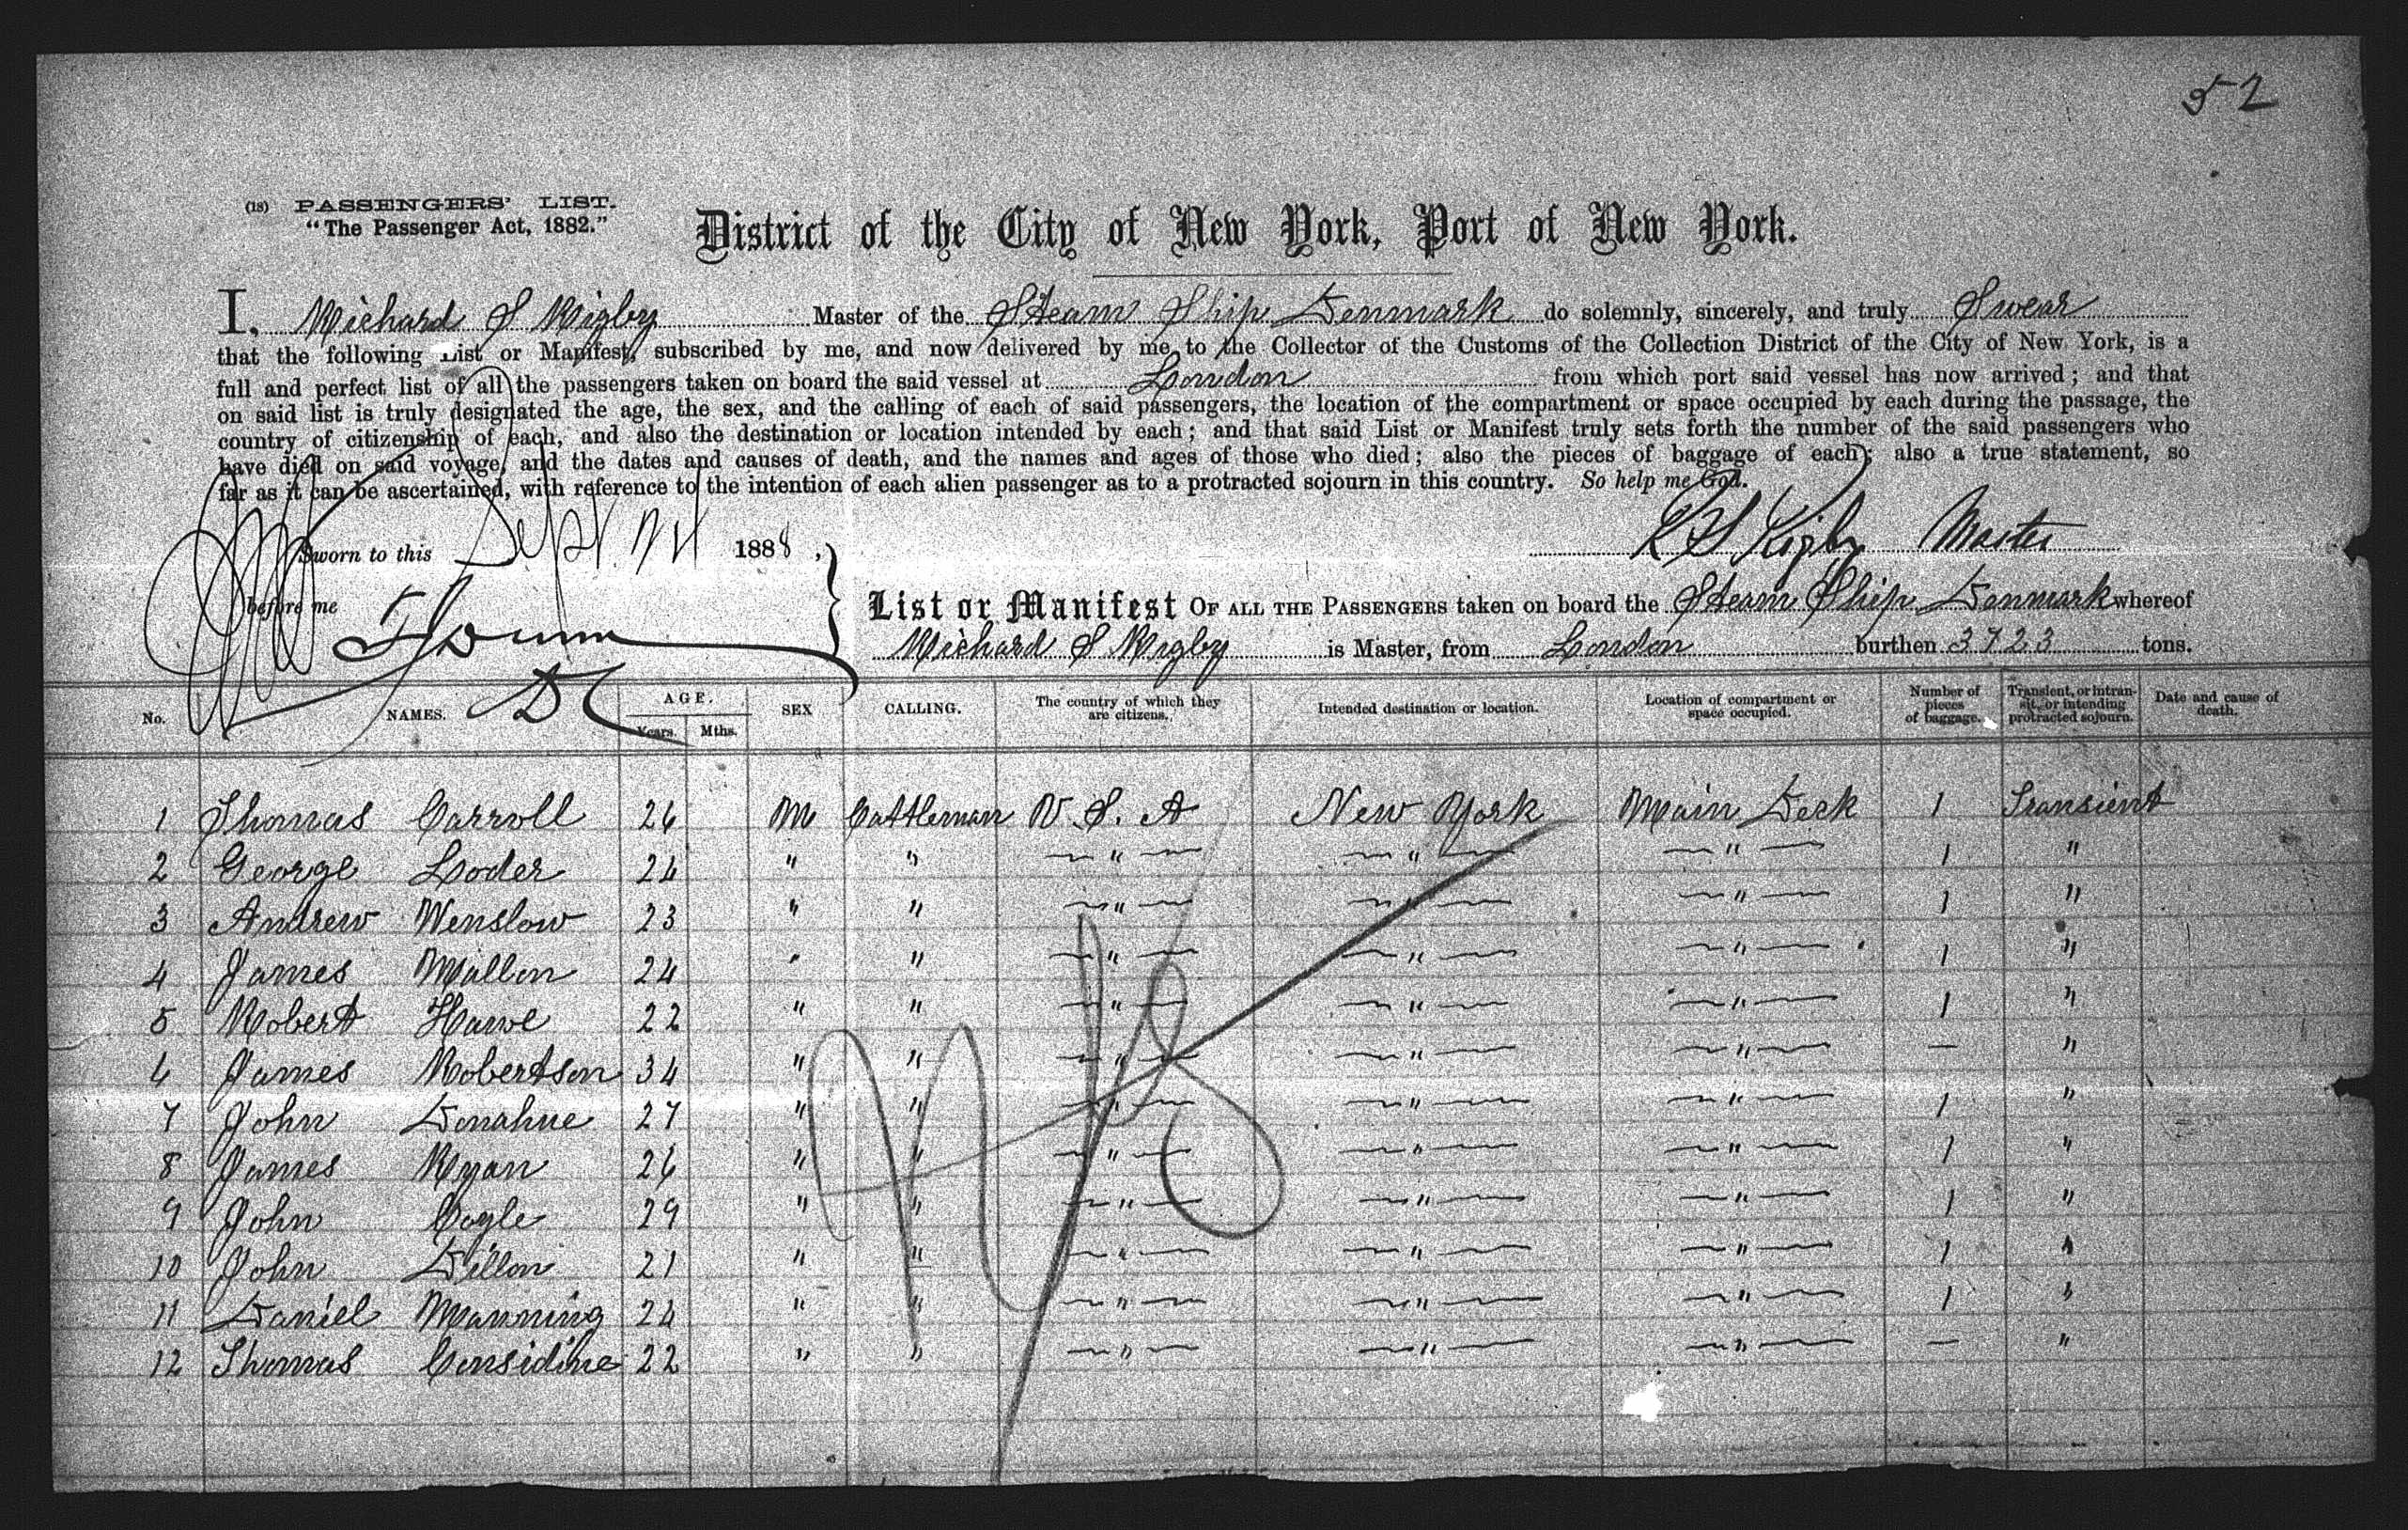 52
(18) PASSENGERS' LIST.
"The Passenger Act, 1882."
District of the City of New York, Port of New York.
I, Richard S Rigby Master of the Steam Ship Denmark do solemnly, sincerely, and truly Swear
that the following List or Manifest, subscribed by me, and now delivered by me to the Collector of the Customs of the Collection District of the City of New York, is a
full and perfect list of all the passengers taken on board the said vessel at London from which port said vessel has now arrived; and that
on said list is truly designated the age, the sex, and the calling of each of said passengers, the location of the compartment or space occupied by each during the passage, the
country of citizenship of each, and also the destination or location intended by each; and that said List or Manifest truly sets forth the number of the said passengers who
have died on said voyage, and the dates and causes of death, and the names and ages of those who died; also the pieces of baggage of each; also a true statement, so
far as it can be ascertained, with reference to the intention of each alien passenger as to a protracted sojourn in this country. So help me God.
Sworn to this Sept 1888,
R S Rigby Master
before me
List or Manifest OF ALL THE PASSENGERS taken on board the Steam Ship Denmark whereof
Richard S Rigby is Master, from London burthen 3723 tons.
No. NAMES. AGE. Years. Mths. SEX CALLING. The country of which they are citizens. Intended destination or location. Location of compartment or space occupied. Number of pieces of baggage. Transient, or in transit, or intending protracted sojourn. Date and cause of death.
1 Thomas Carroll 26 M Cattleman U. S. A New York Main Deck 1 Transient
2 George Loder 24 " " " " " 1 "
3 Andrew Wenslow 23 " " " " " 1 "
4 James Mallon 24 " " " " " 1 "
5 Robert Hawe 22 " " " " " 1 "
6 James Robertson 34 " " " " " — "
7 John Donahue 27 " " " " " 1 "
8 James Ryan 26 " " " " " 1 "
9 John Cogle 29 " " " " " 1 "
10 John Dillon 21 " " " " " 1 "
11 Daniel Manning 24 " " " " " 1 "
12 Thomas Considine 22 " " " " " — "